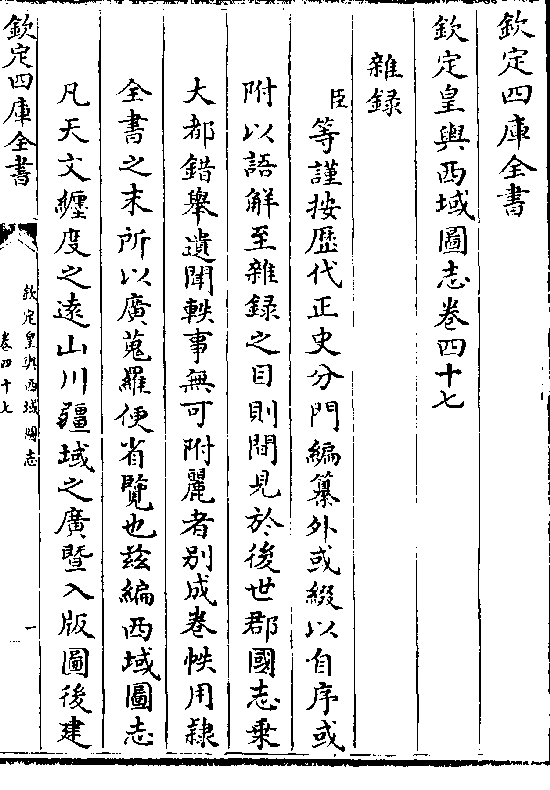 欽定四庫全書
欽定皇輿西域圖志卷四十七
雜録
臣等謹按歴代正史分門編纂外或綴以自序或
附以語解至雜録之目則間見於後世郡國志乗
大都錯舉遺聞軼事無可附麗者别成卷帙用隸
全書之末所以廣蒐羅便省覽也兹編西域圖志
凡天文纒度之逺山川疆域之廣暨入版圖後建
欽定四庫全書
欽定皇輿西域圖志
卷四十七
一